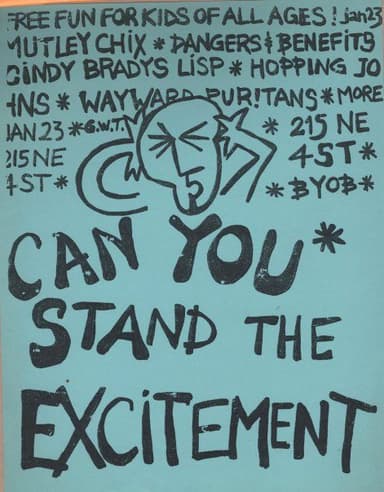 FREE FUN FOR KIDS OF ALL AGES! jan23
MUTLEY CHIX * DANGERS & BENEFITS
CINDY BRADYS LISP * HOPPING JO
HNS * WAYWARD PUR!TANS * MORE
JAN.23 * G.W.T. * 215 NE
215 NE 4ST *
4ST * * BYOB *
CAN YOU *
STAND THE
EXCiTEMENT